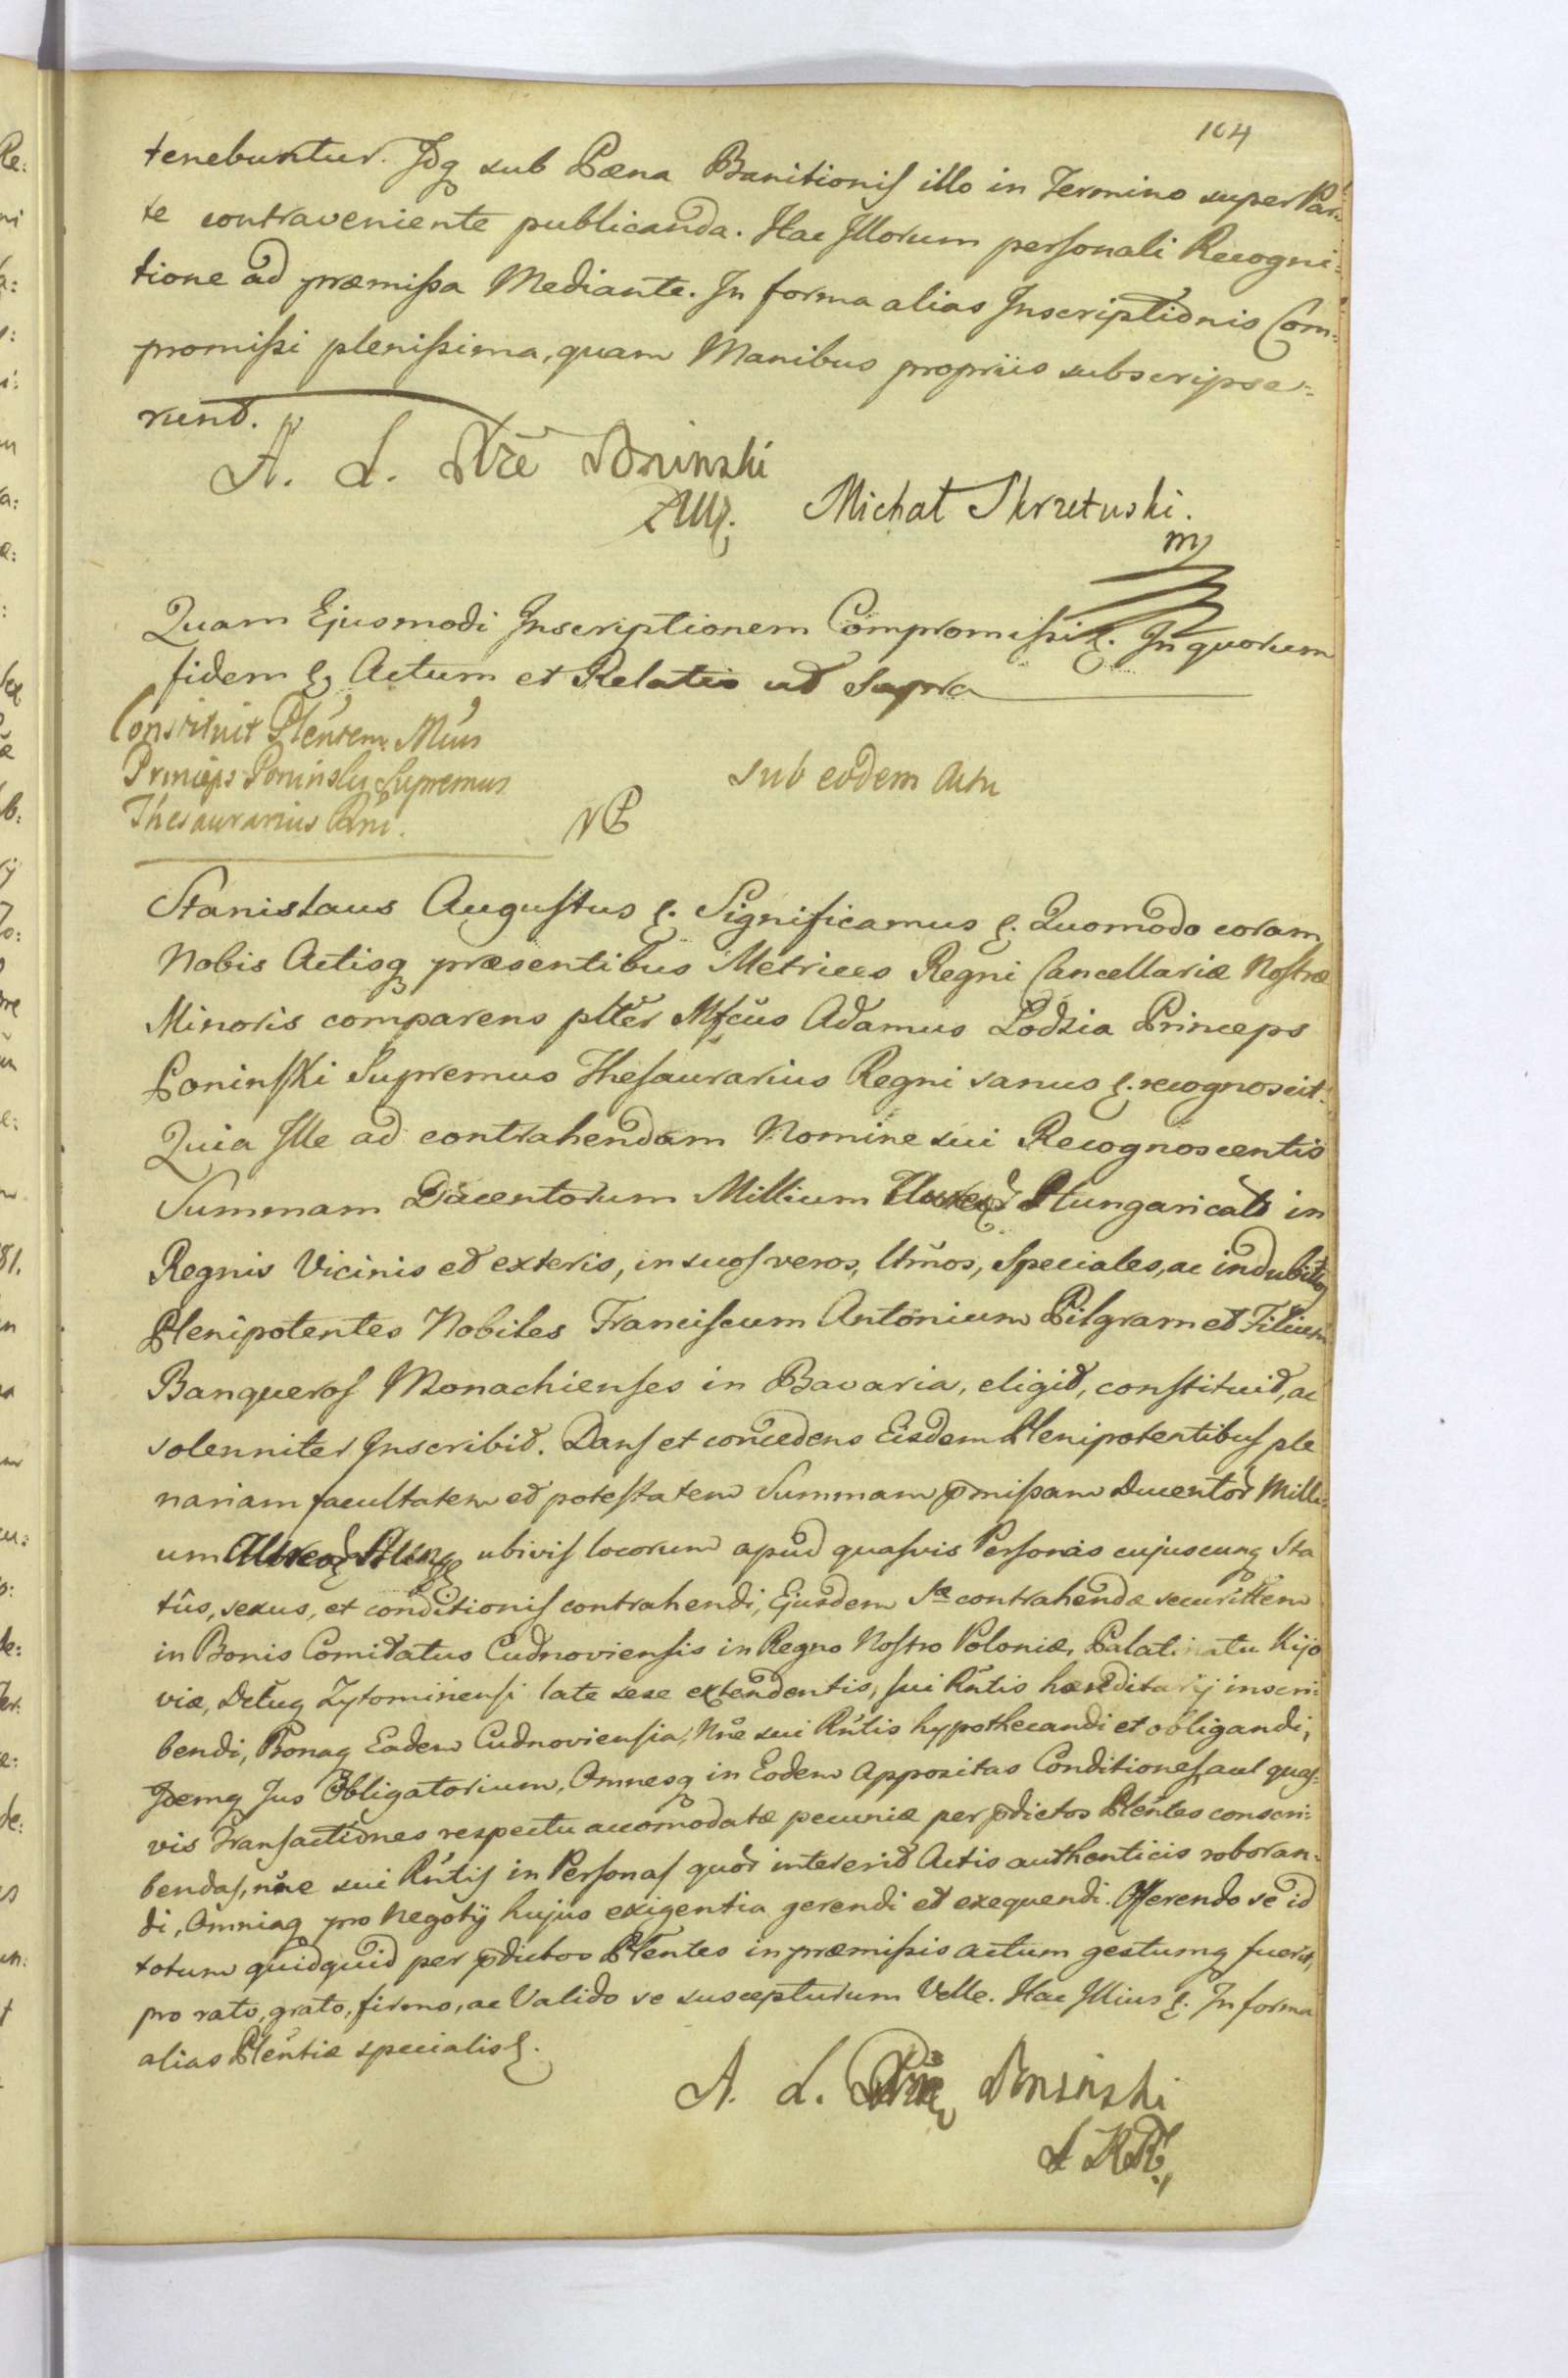 104
tenebuntur. Idq sub Pæna Banitionis illo in Termino super Par:
te contraveniente publicanda. Hac Illorum personali Recogni:
tione ad præmissa Mediante. In forma alias Inscriptionis Com:
promissi plenissima, quam Manibus propriis subscripse:
runt.
A. L. Poninski
Michał Skrzetuski.
mp
Quam Ejusmodi Inscriptionem Compromissi &. In quorum
fidem & Actum et Relatio ut supra
Constituit Plentem Mcus
Princeps Poninski Supremus
Thesaurarius Rni.
sub eodem Actu
Stanislaus Augustus &. Significamus &. Quomodo coram
Nobis Actisq præsentibus Metrices Regni Cancellariæ Nostræ
Minoris comparens pltter Mfcus Adamus Lodzia Princeps
Poninski Supremus Thesaurarius Regni sanus &. recognoscit.
Quia Ille ad contrahendam Nomine sui Recognoscentis
Summam Ducentorum Millium Aureor Hungarical in
Regnis Vicinis et exteris, in suos veros, ltmos, speciales, ac indubit
Plenipotentes Nobiles Franciscum Antonium Pilgram et Filium
Banqueros Monachienses in Bavaria, eligit, constituit, ac
solenniter Inscribit. Dans et concedens Eisdem Plenipotentibus ple
nariam facultatem et potestatem Summam pmissam Ducentor Milli:
um Aureor Hung ubivis locorum apud quasvis Personas cujuscunq Sta
tûs, sexus, et conditionis contrahendi, Ejusdem Sæ contrahendæ securittem
in Bonis Comitatus Cudnoviensis in Regno Nostro Poloniæ, Palatinatu Kijo
viæ, Dctuq Zytominensi late sese extendentis, sui Rntis hæreditarij inscri:
bendi, Bonaq Eadem Cudnoviensia, Nne sui Rntis hypothecandi et obligandi,
Idemq Jus Obligatorium, Omnesq in Eodem Appositas Conditiones, aut quas:
vis Transactiones respectu accomodatæ pecuniæ per pdictos Plentes conscri:
bendas, nne sui Rntis in Personas quor intererit Actis authenticis roboran:
di, Omniaq pro Negotij hujus exigentia gerendi et exequendi. Offerendo se id
totum quidquid per pdictos Plentes in præmissis actum gestumq fuerit,
pro rato, grato, firmo, ac Valido se suscepturum Velle. Hac Illius &. In forma
alias Plentiæ specialis &.
A. L. Poninski